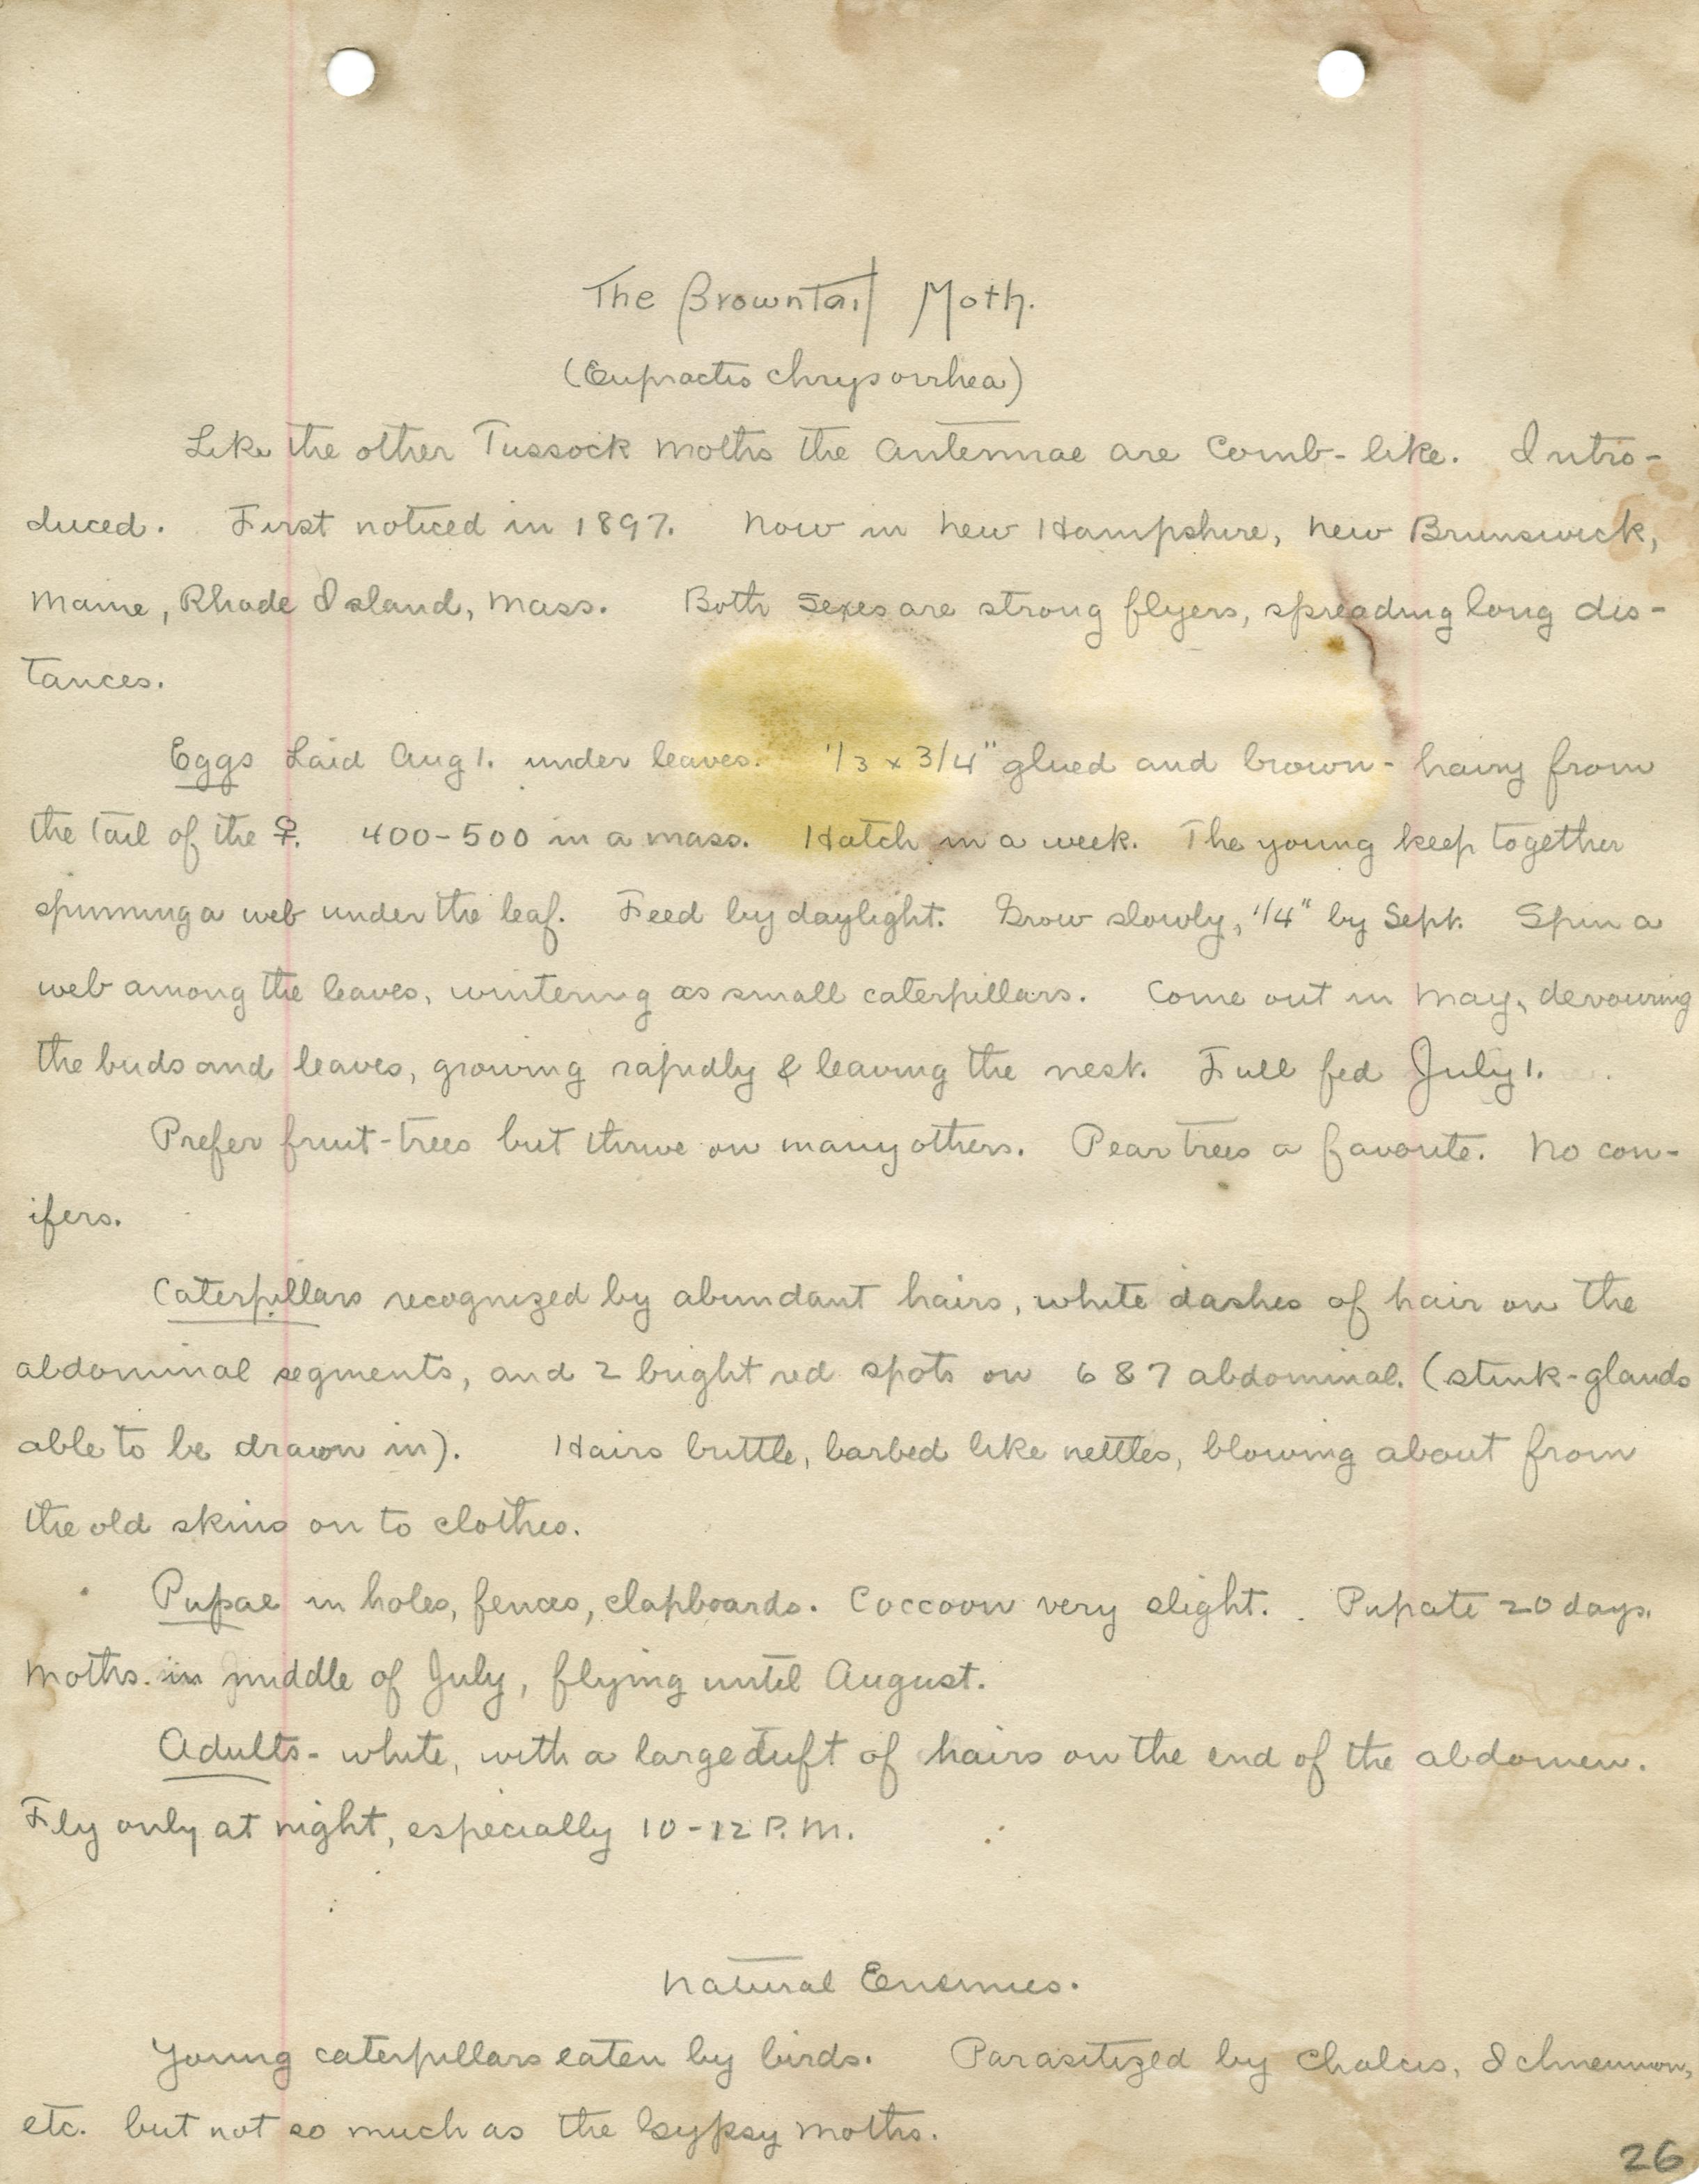 The Browntail Moth.
(Eupractis chrysorrhea)
Like the other Tussock moths the antennae are comb-like. Intro-
duced. First noticed in 1897. Now in New Hampshire, New Brunswick,
Maine, Rhode Island, Mass. Both sexes are strong flyers, spreading long dis-
tances.
Eggs Laid Aug 1. under leaves. 1/3 x 3/4" glued and brown-hairy from
the tail of the ♀. 400-500 in a mass. Hatch in a week. The young keep together
spinning a web under the leaf. Feed by daylight. Grow slowly, 1/4" by Sept. Spin a
web among the leaves, wintering as small caterpillars. Come out in May, devouring
the buds and leaves, growing rapidly & leaving the nest. Full fed July 1.
Prefer fruit-trees but thrive on many others. Pear trees a favorite. No con-
ifers.
Caterpillars recognized by abundant hairs, white dashes of hair on the
abdominal segments, and 2 bright red spots on 6 & 7 abdominal. (stink-glands
able to be drawn in). Hairs brittle, barbed like nettles, blowing about from
the old skins on to clothes.
Pupae in holes, fences, clapboards. Coccoon very slight. Pupate 20 days.
Moths in middle of July, flying until August.
Adults - white, with a large tuft of hairs on the end of the abdomen.
Fly only at night, especially 10-12 P.M.
Natural Enemies.
Young caterpillars eaten by birds. Parasitized by Chalcis, Ichneumon,
etc. but not so much as the Gypsy moths.
26